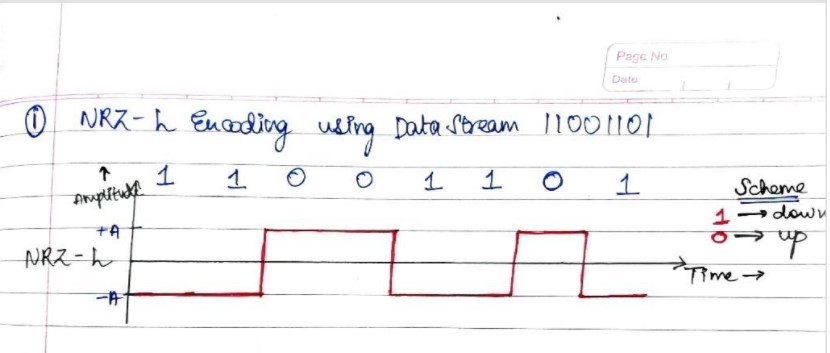 Page No.
Date
① NRZ-L Encoding using Data Stream 11001101
↑ 1 1 0 0 1 1 0 1
Amplitude
Scheme
1 → down
+A
0 → up
NRZ-L
Time →
-A